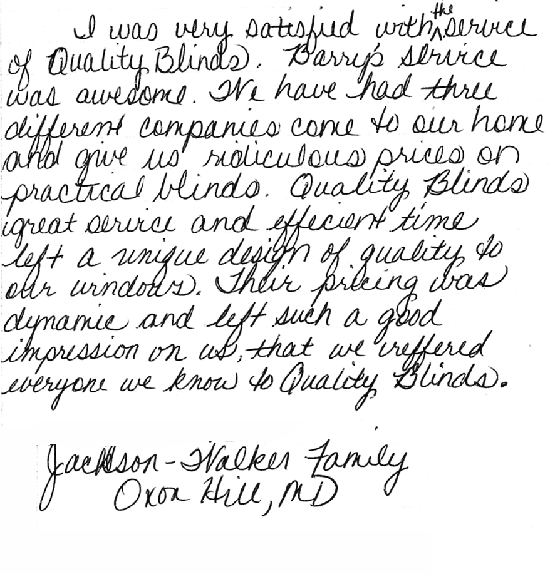 I was very satisfied with the service
of Quality Blinds. Barry's service
was awesome. We have had three
different companies come to our home
and give us ridiculous prices on
practical blinds. Quality Blinds
great service and effecient time
left a unique design of quality to
our windows. Their pricing was
dynamic and left such a good
impression on us, that we reffered
everyone we know to Quality Blinds.
Jackson-Walker Family
Oxon Hill, MD